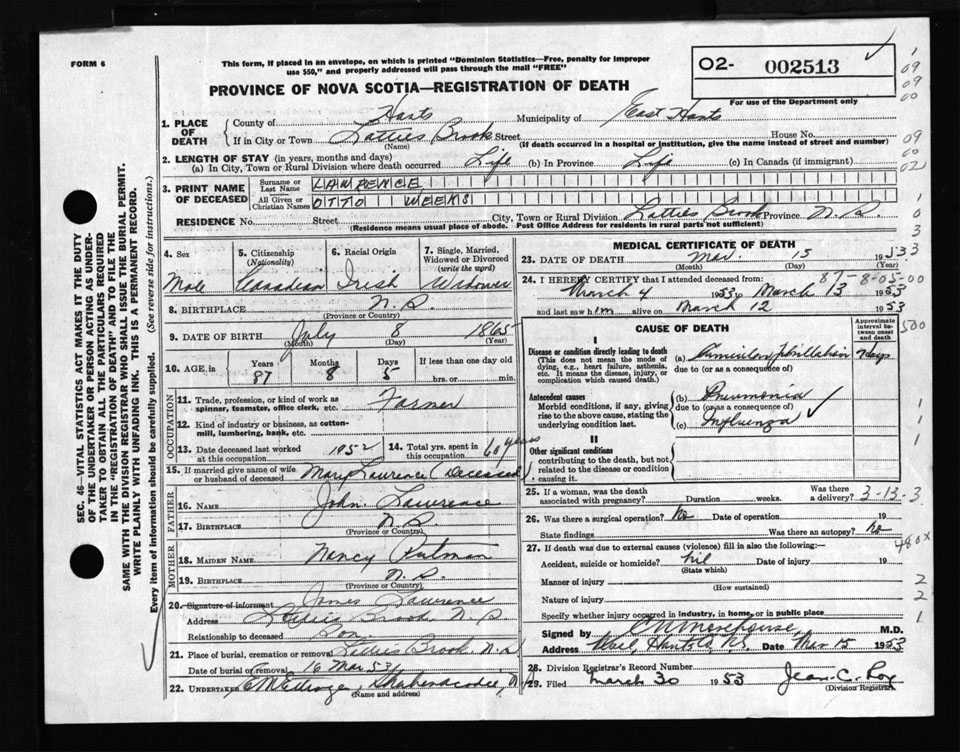 FORM 6
This form, if placed in an envelope, on which is printed "Dominion Statistics—Free, penalty for improper
use $50," and properly addressed will pass through the mail "FREE"
O2- 002513
For use of the Department only
PROVINCE OF NOVA SCOTIA—REGISTRATION OF DEATH
1. PLACE OF DEATH
County of Hants Municipality of East Hants
If in City or Town Latties Brook Street House No.
(Name) (If death occurred in a hospital or institution, give the name instead of street and number)
2. LENGTH OF STAY (in years, months and days)
(a) In City, Town or Rural Division where death occurred Life (b) In Province Life (c) In Canada (if immigrant)
3. PRINT NAME OF DECEASED
Surname or Last Name LAWRENCE
All Given or Christian Names OTTO WEEKS
RESIDENCE No. Street City, Town or Rural Division Latties Brook Province N.S.
(Residence means usual place of abode. Post Office Address for residents in rural parts not sufficient)
4. Sex 5. Citizenship (Nationality) 6. Racial Origin 7. Single, Married, Widowed or Divorced (write the word)
Male Canadian Irish Widower
8. BIRTHPLACE N.S.
(Province or Country)
9. DATE OF BIRTH July 8 1865
(Month) (Day) (Year)
10. AGE in Years Months Days If less than one day old
87 8 5 hrs. or min.
OCCUPATION
11. Trade, profession, or kind of work as spinner, teamster, office clerk, etc. Farmer
12. Kind of industry or business, as cotton-mill, lumbering, bank, etc.
13. Date deceased last worked at this occupation 1952 14. Total yrs. spent in this occupation 60 years
15. If married give name of wife or husband of deceased Mary Lawrence (Deceased)
FATHER
16. NAME John Lawrence
17. BIRTHPLACE N.S.
(Province or Country)
MOTHER
18. MAIDEN NAME Nancy Putman
19. BIRTHPLACE N.S.
(Province or Country)
20. Signature of informant James Lawrence
Address Latties Brook, N.S.
Relationship to deceased Son
21. Place of burial, cremation or removal Latties Brook, N.S.
Date of burial or removal 16 Mar. 53
22. UNDERTAKER
(Name and address)
MEDICAL CERTIFICATE OF DEATH
23. DATE OF DEATH Mar. 15 1953
(Month) (Day) (Year)
24. I HEREBY CERTIFY that I attended deceased from:
March 4 1953 to March 13 1953
and last saw him alive on March 12 1953
CAUSE OF DEATH
Approximate interval between onset and death
I
Disease or condition directly leading to death
(This does not mean the mode of dying, e.g., heart failure, asthenia, etc. It means the disease, injury, or complication which caused death.)
(a) fibrillation 7 days
due to (or as a consequence of)
Antecedent causes
Morbid conditions, if any, giving rise to the above cause, stating the underlying condition last.
(b) Pneumonia
due to (or as a consequence of)
(c) Influenza
II
Other significant conditions
contributing to the death, but not related to the disease or condition causing it.
25. If a woman, was the death associated with pregnancy? Duration weeks. Was there a delivery? 3-13-3
26. Was there a surgical operation? No Date of operation 19
State findings Was there an autopsy? No
27. If death was due to external causes (violence) fill in also the following:—
Accident, suicide or homicide? nil Date of injury 19
(State which)
Manner of injury
(How sustained)
Nature of injury
Specify whether injury occurred in industry, in home, or in public place
Signed by Morehouse M.D.
Address Mar 15 1953
28. Division Registrar's Record Number
29. Filed March 30 1953 Jean C. Roy
(Division Registrar)
SEC. 46—VITAL STATISTICS ACT MAKES IT THE DUTY
OF THE UNDERTAKER OR PERSON ACTING AS UNDER-
TAKER TO OBTAIN ALL THE PARTICULARS REQUIRED
IN THE "REGISTRATION OF DEATH" AND TO FILE THE
SAME WITH THE DIVISION REGISTRAR WHO SHALL ISSUE THE BURIAL PERMIT.
WRITE PLAINLY WITH UNFADING INK. THIS IS A PERMANENT RECORD.
Every item of information should be carefully supplied. (See reverse side for instructions.)